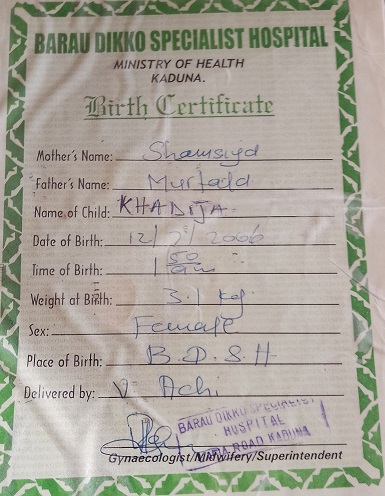 BARAU DIKKO SPECIALIST HOSPITAL
MINISTRY OF HEALTH
KADUNA.
Birth Certificate
Mother's Name: Shamsiya
Father's Name: Murtala
Name of Child: KHADIJA
Date of Birth: 12/7/2006
Time of Birth: 1 50 am
Weight at Birth: 3.1 kg
Sex: Female
Place of Birth: B.D.S.H
Delivered by: V. Achi
BARAU DIKKO SPECIALIST
HOSPITAL
ROAD KADUNA
Gynaecologist/Midwifery/Superintendent